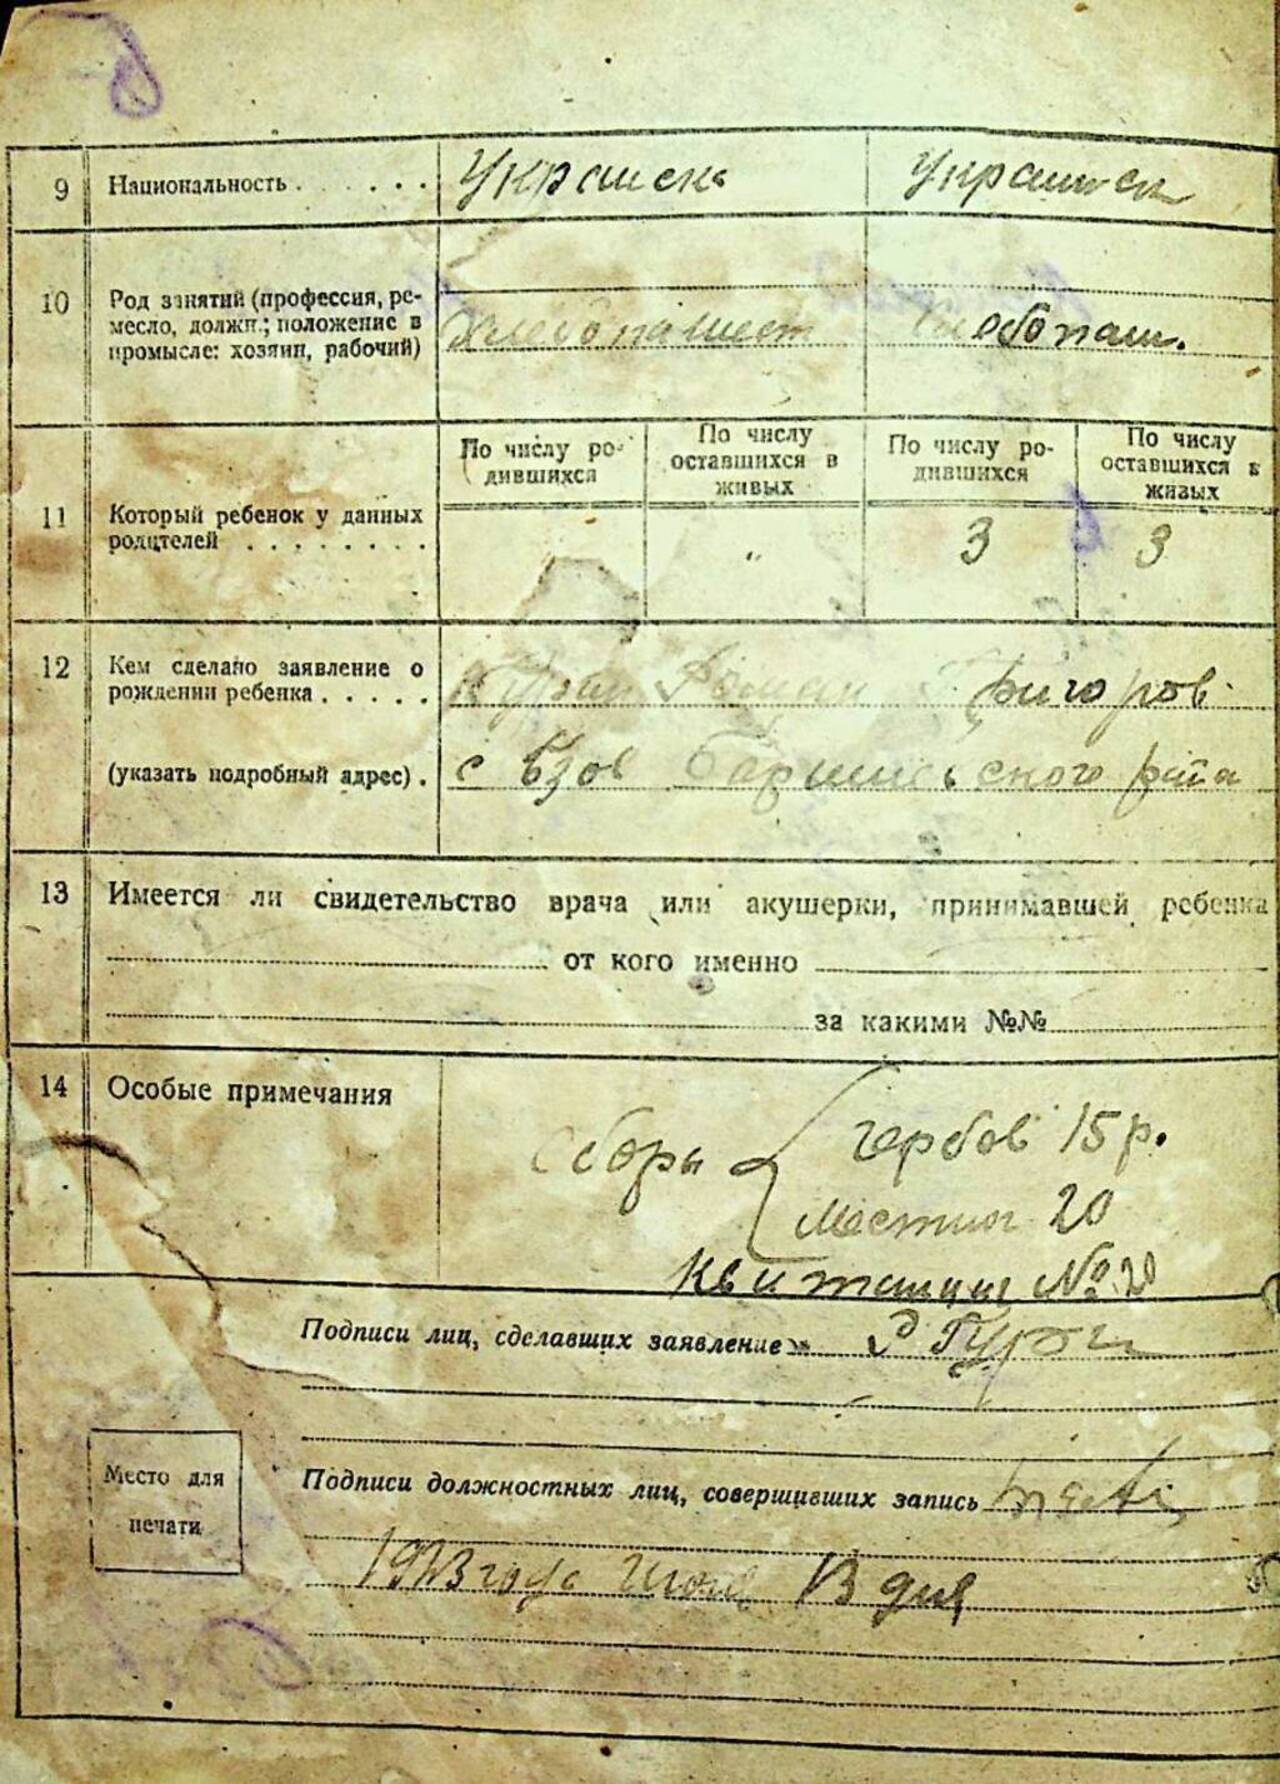 9 Национальность . . . . . . Украинск Украинск
10 Род занятий (профессия, ре-
месло, должн.; положение в
промысле: хозяин, рабочий)
хлебопашест хлебопаш.
11 Который ребенок у данных
родителей . . . . . . . .
По числу ро-
дившихся
По числу
оставшихся в
живых
По числу ро-
дившихся
По числу
оставшихся в
живых
" 3 3
12 Кем сделано заявление о
рождении ребенка . . . . .
Роман Григоров
(указать подробный адрес) .
с Бзов Баришевского рай̄а
13 Имеется ли свидетельство врача или акушерки, принимавшей ребенка
от кого именно
за какими №№
14 Особые примечания
Сборы гербов 15 р.
Местног 20
Квитанция №
Подписи лиц, сделавших заявление
Подписи должностных лиц, совершивших запись
Место для
печати
1923 года Июня 13 дня